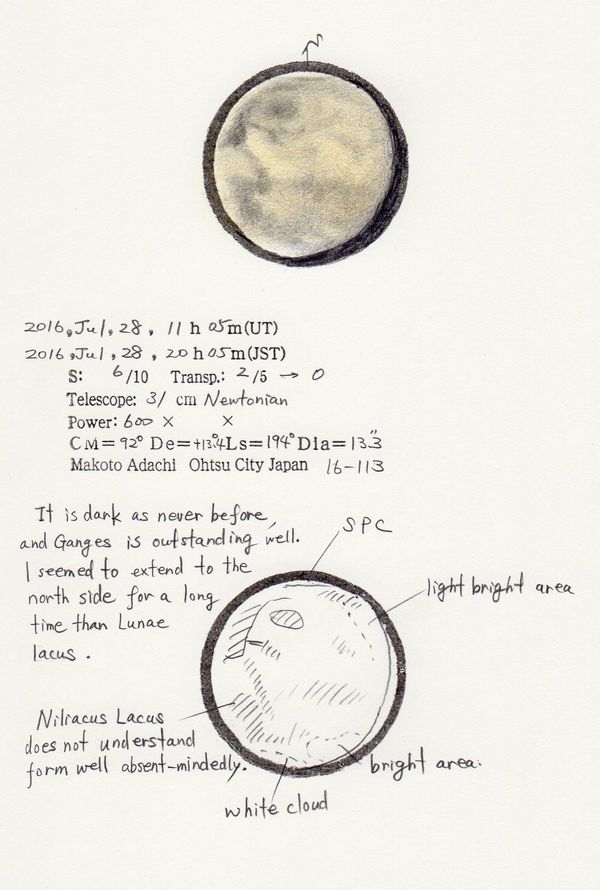 N
2016, Jul, 28, 11 h 05m(UT)
2016, Jul, 28, 20 h 05m(JST)
S: 6/10 Transp.: 2/5 → 0
Telescope: 31 cm Newtonian
Power: 600 × ×
CM= 92° De=+13.4° Ls= 194° Dia= 13.3"
Makoto Adachi Ohtsu City Japan 16-113
It is dark as never before,
and Ganges is outstanding well.
I seemed to extend to the
north side for a long
time than Lunae
lacus.
SPC
light bright area
Niliacus Lacus
does not understand
form well absent-mindedly.
bright area.
white cloud